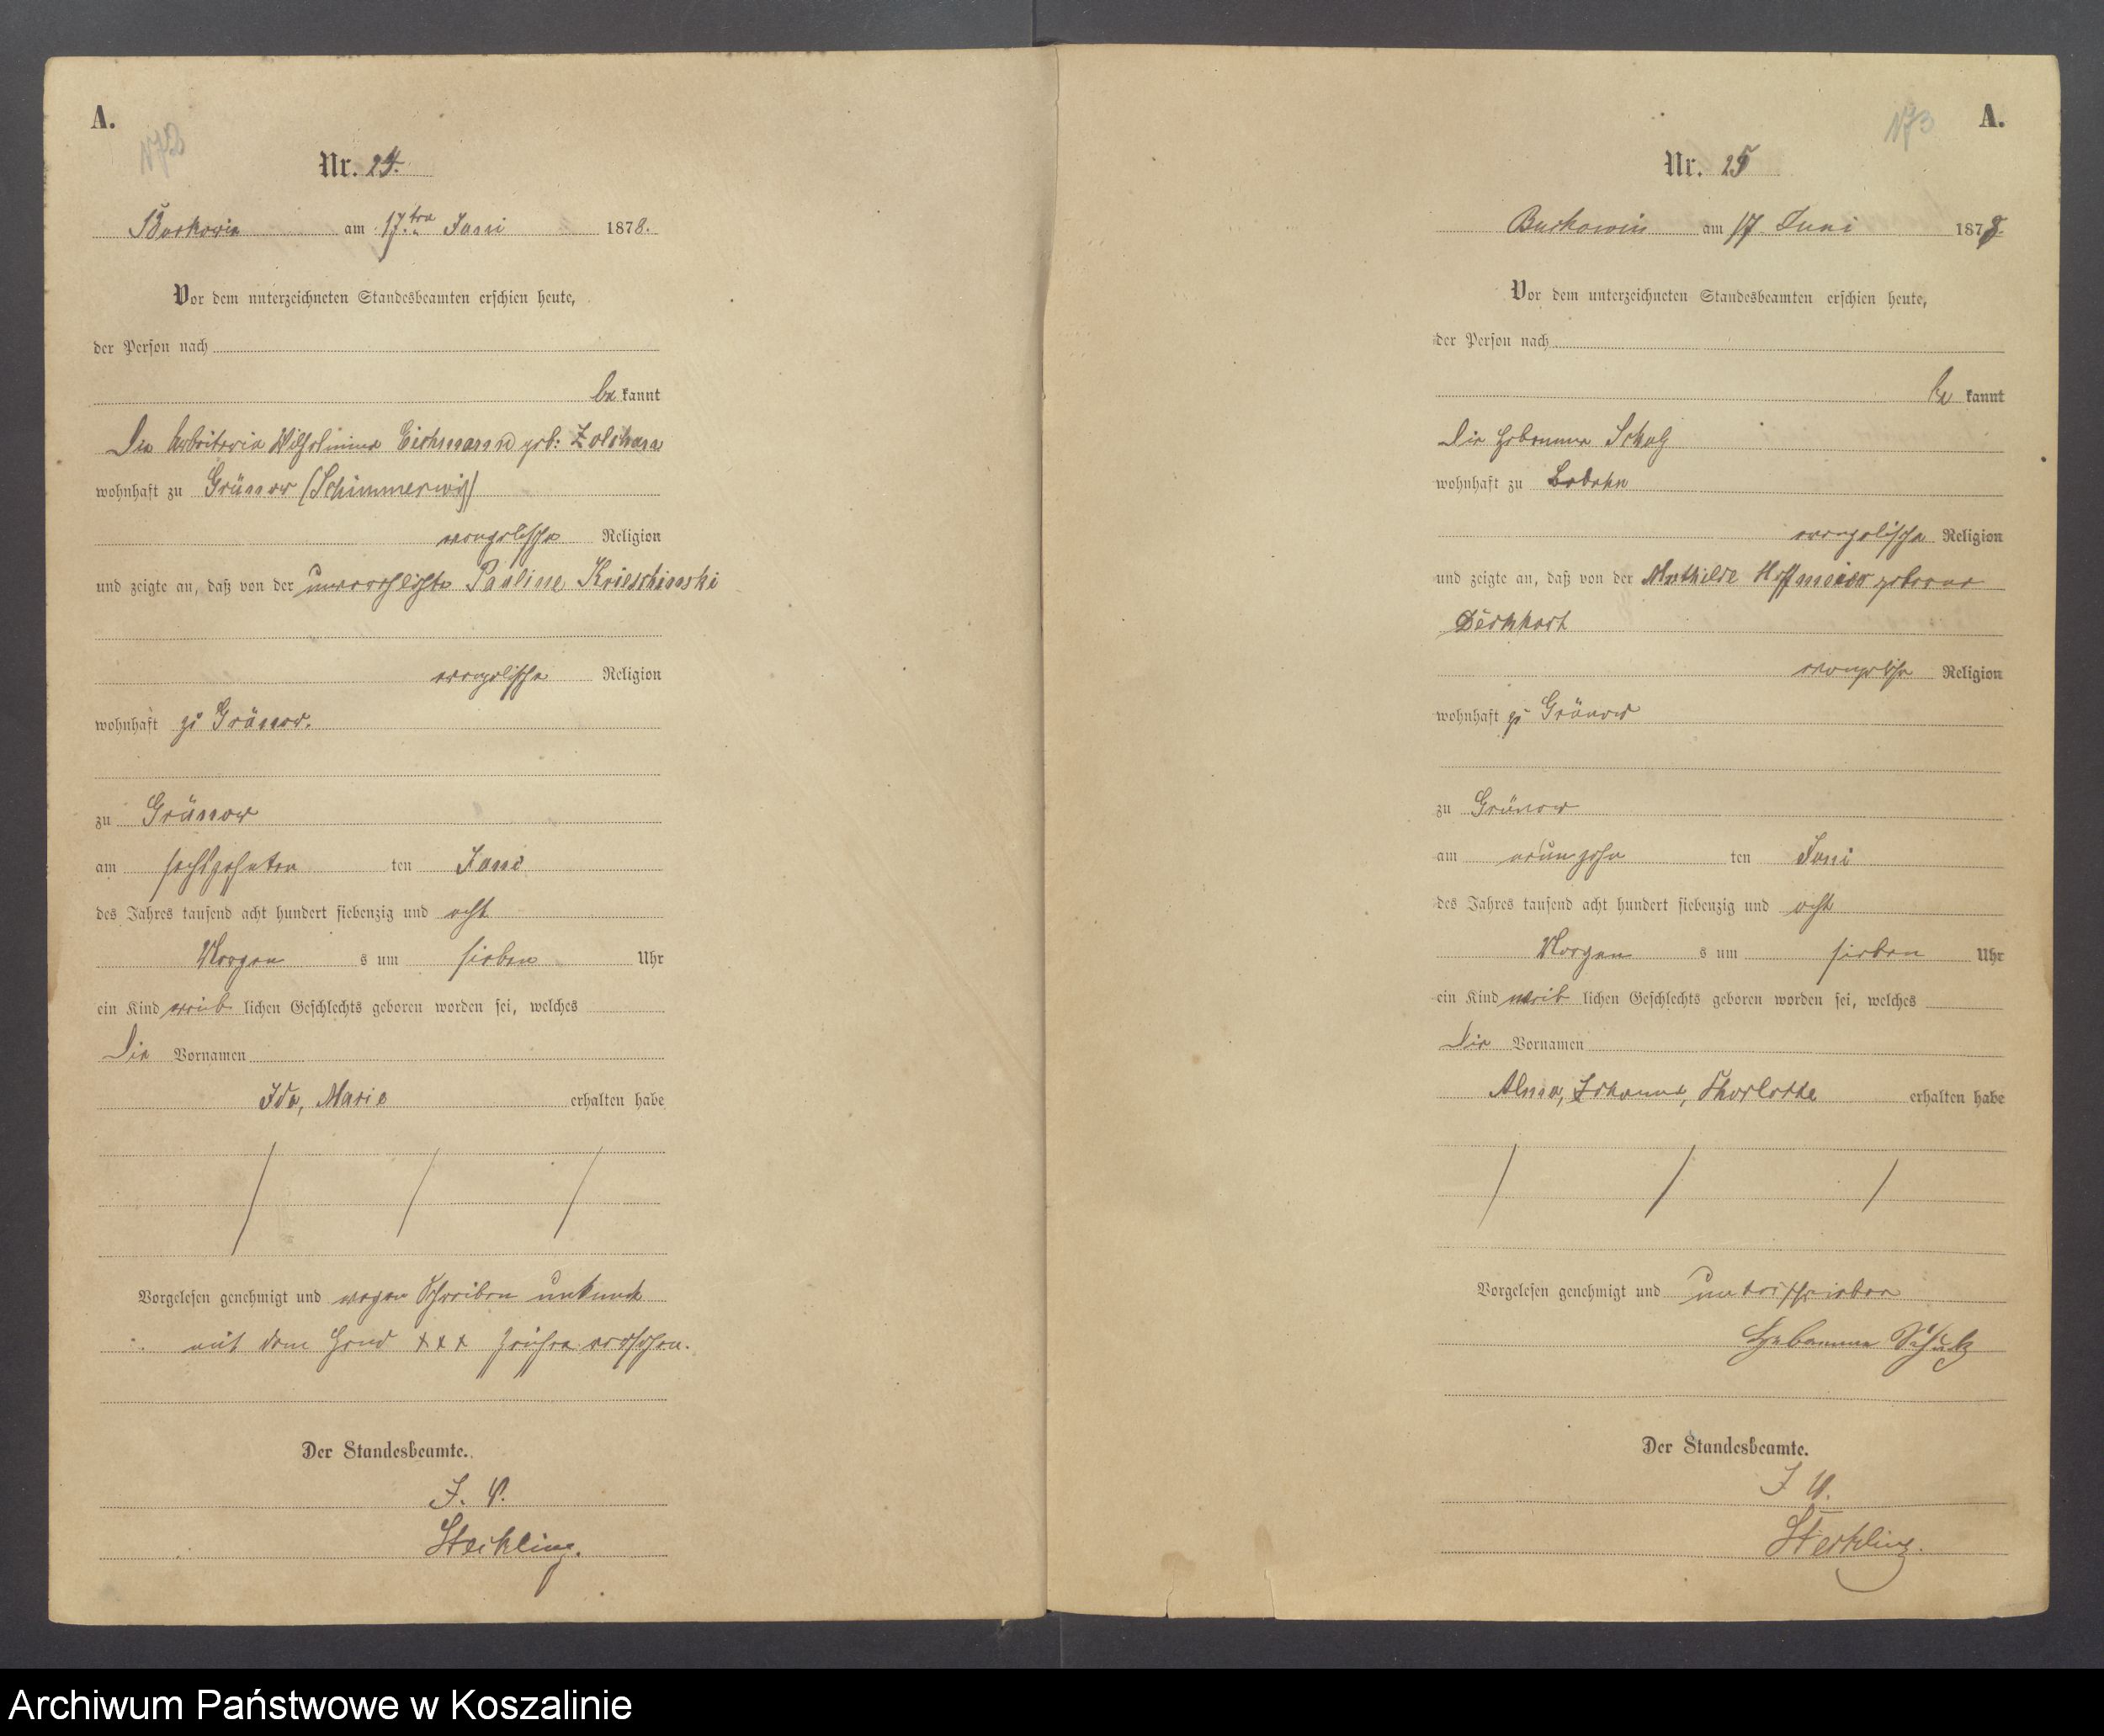 A.
Nr. 24.
Burkowin am 17.ten Juni 1878.
Vor dem unterzeichneten Standesbeamten erschien heute,
der Person nach
be kannt
Die Arbeiterin Wilhelmine Eichmann geb:
wohnhaft zu Grünow (Schimmerwitz)
evangelische Religion
und zeigte an, daß von der unverehelichte Pauline Krieschinski
evangelische Religion
wohnhaft zu Grünow.
zu Grünow
am sechszehnten ten Juni
des Jahres tausend acht hundert siebenzig und acht
Morgen s um sieben Uhr
ein Kind weib lichen Geschlechts geboren worden sei, welches
die Vornamen
Ida, Marie erhalten habe
Vorgelesen genehmigt und wegen Schreiben unkunde
mit dem Hand xxx Zeichen versehen.
Der Standesbeamte.
J. V.
Steckling.
A.
Nr. 25
Burkowin am 17 Juni 1878.
Vor dem unterzeichneten Standesbeamten erschien heute,
der Person nach
be kannt
Die Hebamme Schulz
wohnhaft zu
evangelische Religion
und zeigte an, daß von der Mathilde Hoffmeier geborene
evangelische Religion
wohnhaft zu Grünow
zu Grünow
am ten Juni
des Jahres tausend acht hundert siebenzig und acht
Morgen s um sieben Uhr
ein Kind weib lichen Geschlechts geboren worden sei, welches
die Vornamen
Alma, Johanne, Charlotte erhalten habe
Vorgelesen genehmigt und unterschrieben
Hebamme Schulz
Der Standesbeamte.
J V.
Steckling.
Archiwum Państwowe w Koszalinie